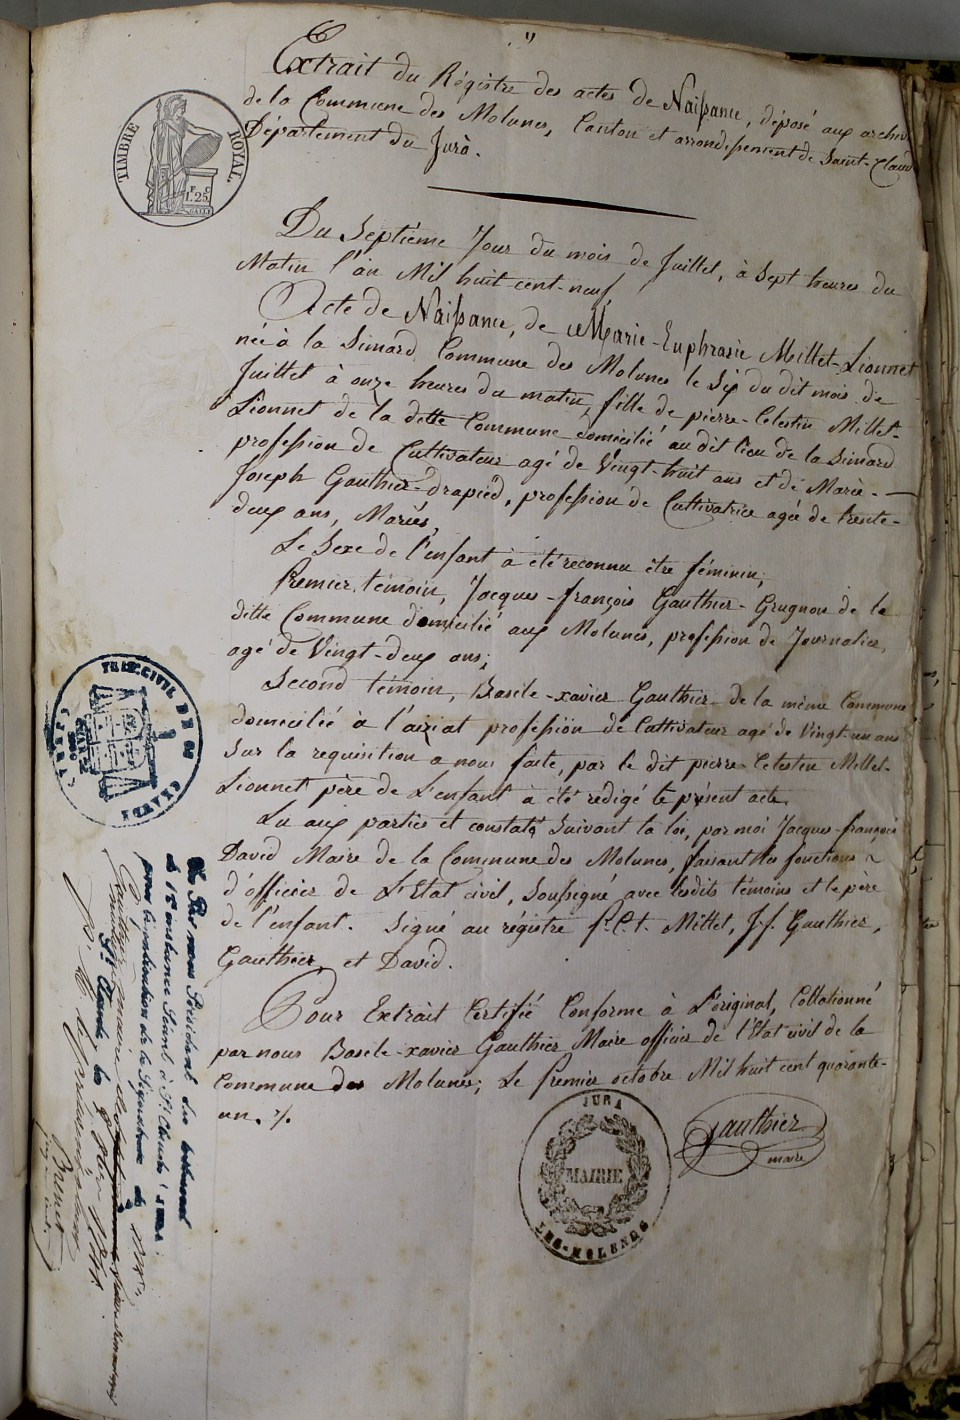 Extrait du Régistre des actes de Naissance, déposé aux archiv
de la Commune des Molunes, Canton et arrondissement de Saint-Claud
Département du Jura.
TIMBRE ROYAL
F C
1.25
Du Septième Jour du mois de Juillet, à Sept heures du
Matin l'an Mil huit cent-neuf
Acte de Naissance, de Marie-Euphrasie Millet-Lionnet
née à la Simard, Commune des Molunes le Six du dit mois de
Juillet à onze heures du matin, fille de pierre-Celestin Millet-
Lionnet de la dette Commune domicilié au dit lieu de la Simard
profession de Cultivateur agé de Vingt-huit ans et de Marie-
Joseph Gauthier-drapied, profession de Cultivatrice agée de trente-
deux ans, Mariés,
Le Sexe de l'enfant à été reconnu être féminin,
Premier témoin, Jacques-françois Gauthier-Grugnon de la
ditte Commune domicilié aux Molunes, profession de Journalier,
agé de Vingt-deux ans;
Second témoin, Basile-xavier Gauthier de la même Commune
domicilié à l'aiziat profession de Cultivateur agé de Vingt un ans
Sur la requisition a nous faite, par le dit pierre-Celestin Millet-
Lionnet père de L'enfant à été rédigé le présent acte,
Lu aux parties et constaté Suivant la loi, par moi Jacques-françois
David Maire de la Commune des Molunes, faisant les fonctions
d'officier de L'Etat civil, Soussigné avec lesdits témoins et le père
de l'enfant. Signé au régistre p.C.t. Millet, J.f. Gauthier,
Gauthier, et David.
Pour Extrait Certifié Conforme à L'original, Collationné
par nous Basile-xavier Gauthier Maire officier de l'Etat civil de la
Commune des Molunes; Le Premier octobre Mil huit cent quarante-
un.
Gauthier
maire
JURA
MAIRIE
LES-MOLUNES
TRIB. CIVIL DE ST CLAUDE
Vu Par nous Président du tribunal
de 1re instance Séant à St Claude (Jura
pour légalisation de la Signature de
Gauthier maire
St Claude, le